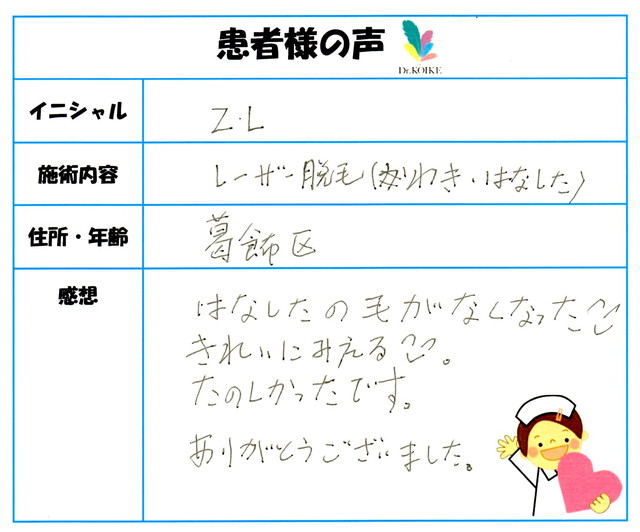 患者様の声
Dr.KOIKE
イニシャル
Z.L
施術内容
レーザー脱毛(わき・はなした)
住所・年齢
葛飾区
感想
はなしたの毛がなくなった
きれいにみえる。
たのしかったです。
ありがとうございました。